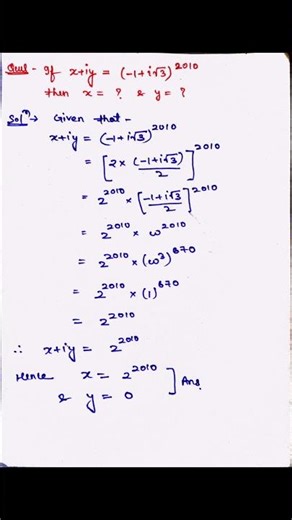 Ques - If x+iy = (-1+i√3)^2010
then x = ? & y = ?
Solⁿ → Given that -
x+iy = (-1+i√3)^2010
= [2 × (-1+i√3)/2]^2010
= 2^2010 × [(-1+i√3)/2]^2010
= 2^2010 × ω^2010
= 2^2010 × (ω^3)^670
= 2^2010 × (1)^670
= 2^2010
∴ x+iy = 2^2010
Hence x = 2^2010
& y = 0 ] Ans